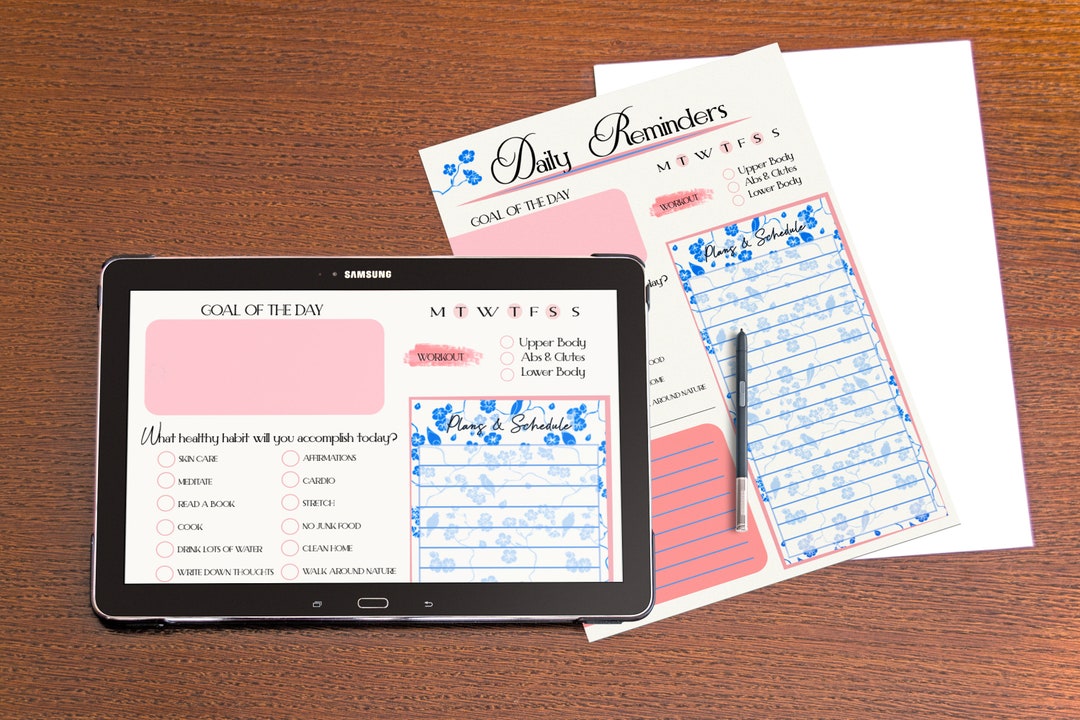 Daily Reminders
GOAL OF THE DAY
M T W T F S S
WORKOUT
Upper Body
Abs & Glutes
Lower Body
Plans & Schedule
AROUND NATURE
SAMSUNG
GOAL OF THE DAY
M T W T F S S
WORKOUT
Upper Body
Abs & Glutes
Lower Body
What healthy habit will you accomplish today?
SKIN CARE
MEDITATE
READ A BOOK
COOK
DRINK LOTS OF WATER
WRITE DOWN THOUGHTS
AFFIRMATIONS
CARDIO
STRETCH
NO JUNK FOOD
CLEAN HOME
WALK AROUND NATURE
Plans & Schedule